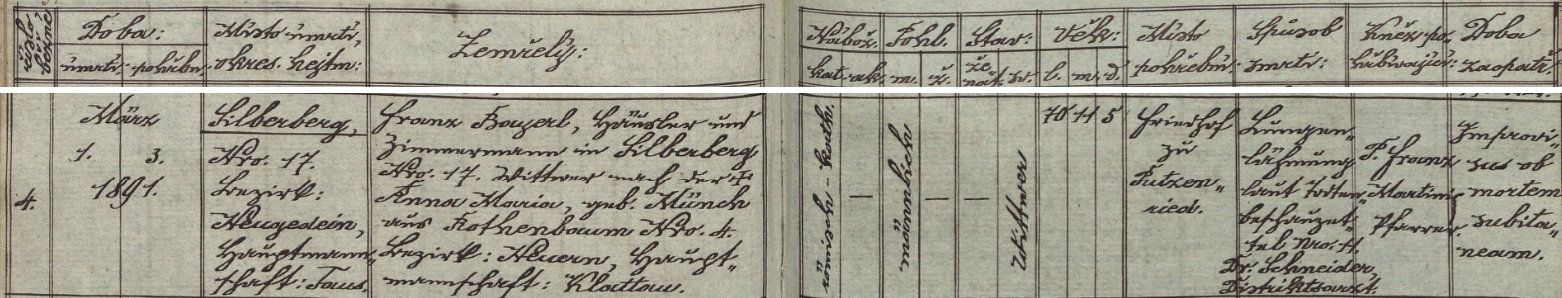 číslo běžné
Doba:
úmrtí: pohřbu:
Místo úmrtí, okres. hejtm:
Zemřelý:
Nábož.
kat. ak.
Pohl.
m. ž.
Stav:
že nat. sv.
Věk:
l. m. d.
Místo pohřební:
Způsob smrti:
Kněz po hřbívající:
Doba zaopatř.
4.
März
1. 3.
1891.
Silberberg,
Nro. 17.
Bezirk:
Neugedein,
Hauptmann„
schaft: Taus.
Franz Bouzerl, Häusler und
Zimmermann in Silberberg
Nro. 17. Wittwer nach der †
Anna Maria, geb. Münch
aus Rothenbaum Nro. 4.
Bezirk: Neuern, Haupt„
mannschaft: Klattau.
römisch - kath.
—
männlich
— —
Wittwer
70 11 5
Friedhof
zu
Putzen„
ried.
Lungen„
lähmung
laut Todten„
beschauzet„
tel Nro. 11.
Dr. Schneider,
Distriktsarzt.
P. Franz
Martini
Pfarrer.
Improvi„
sus ob
mortem
subita„
neam.